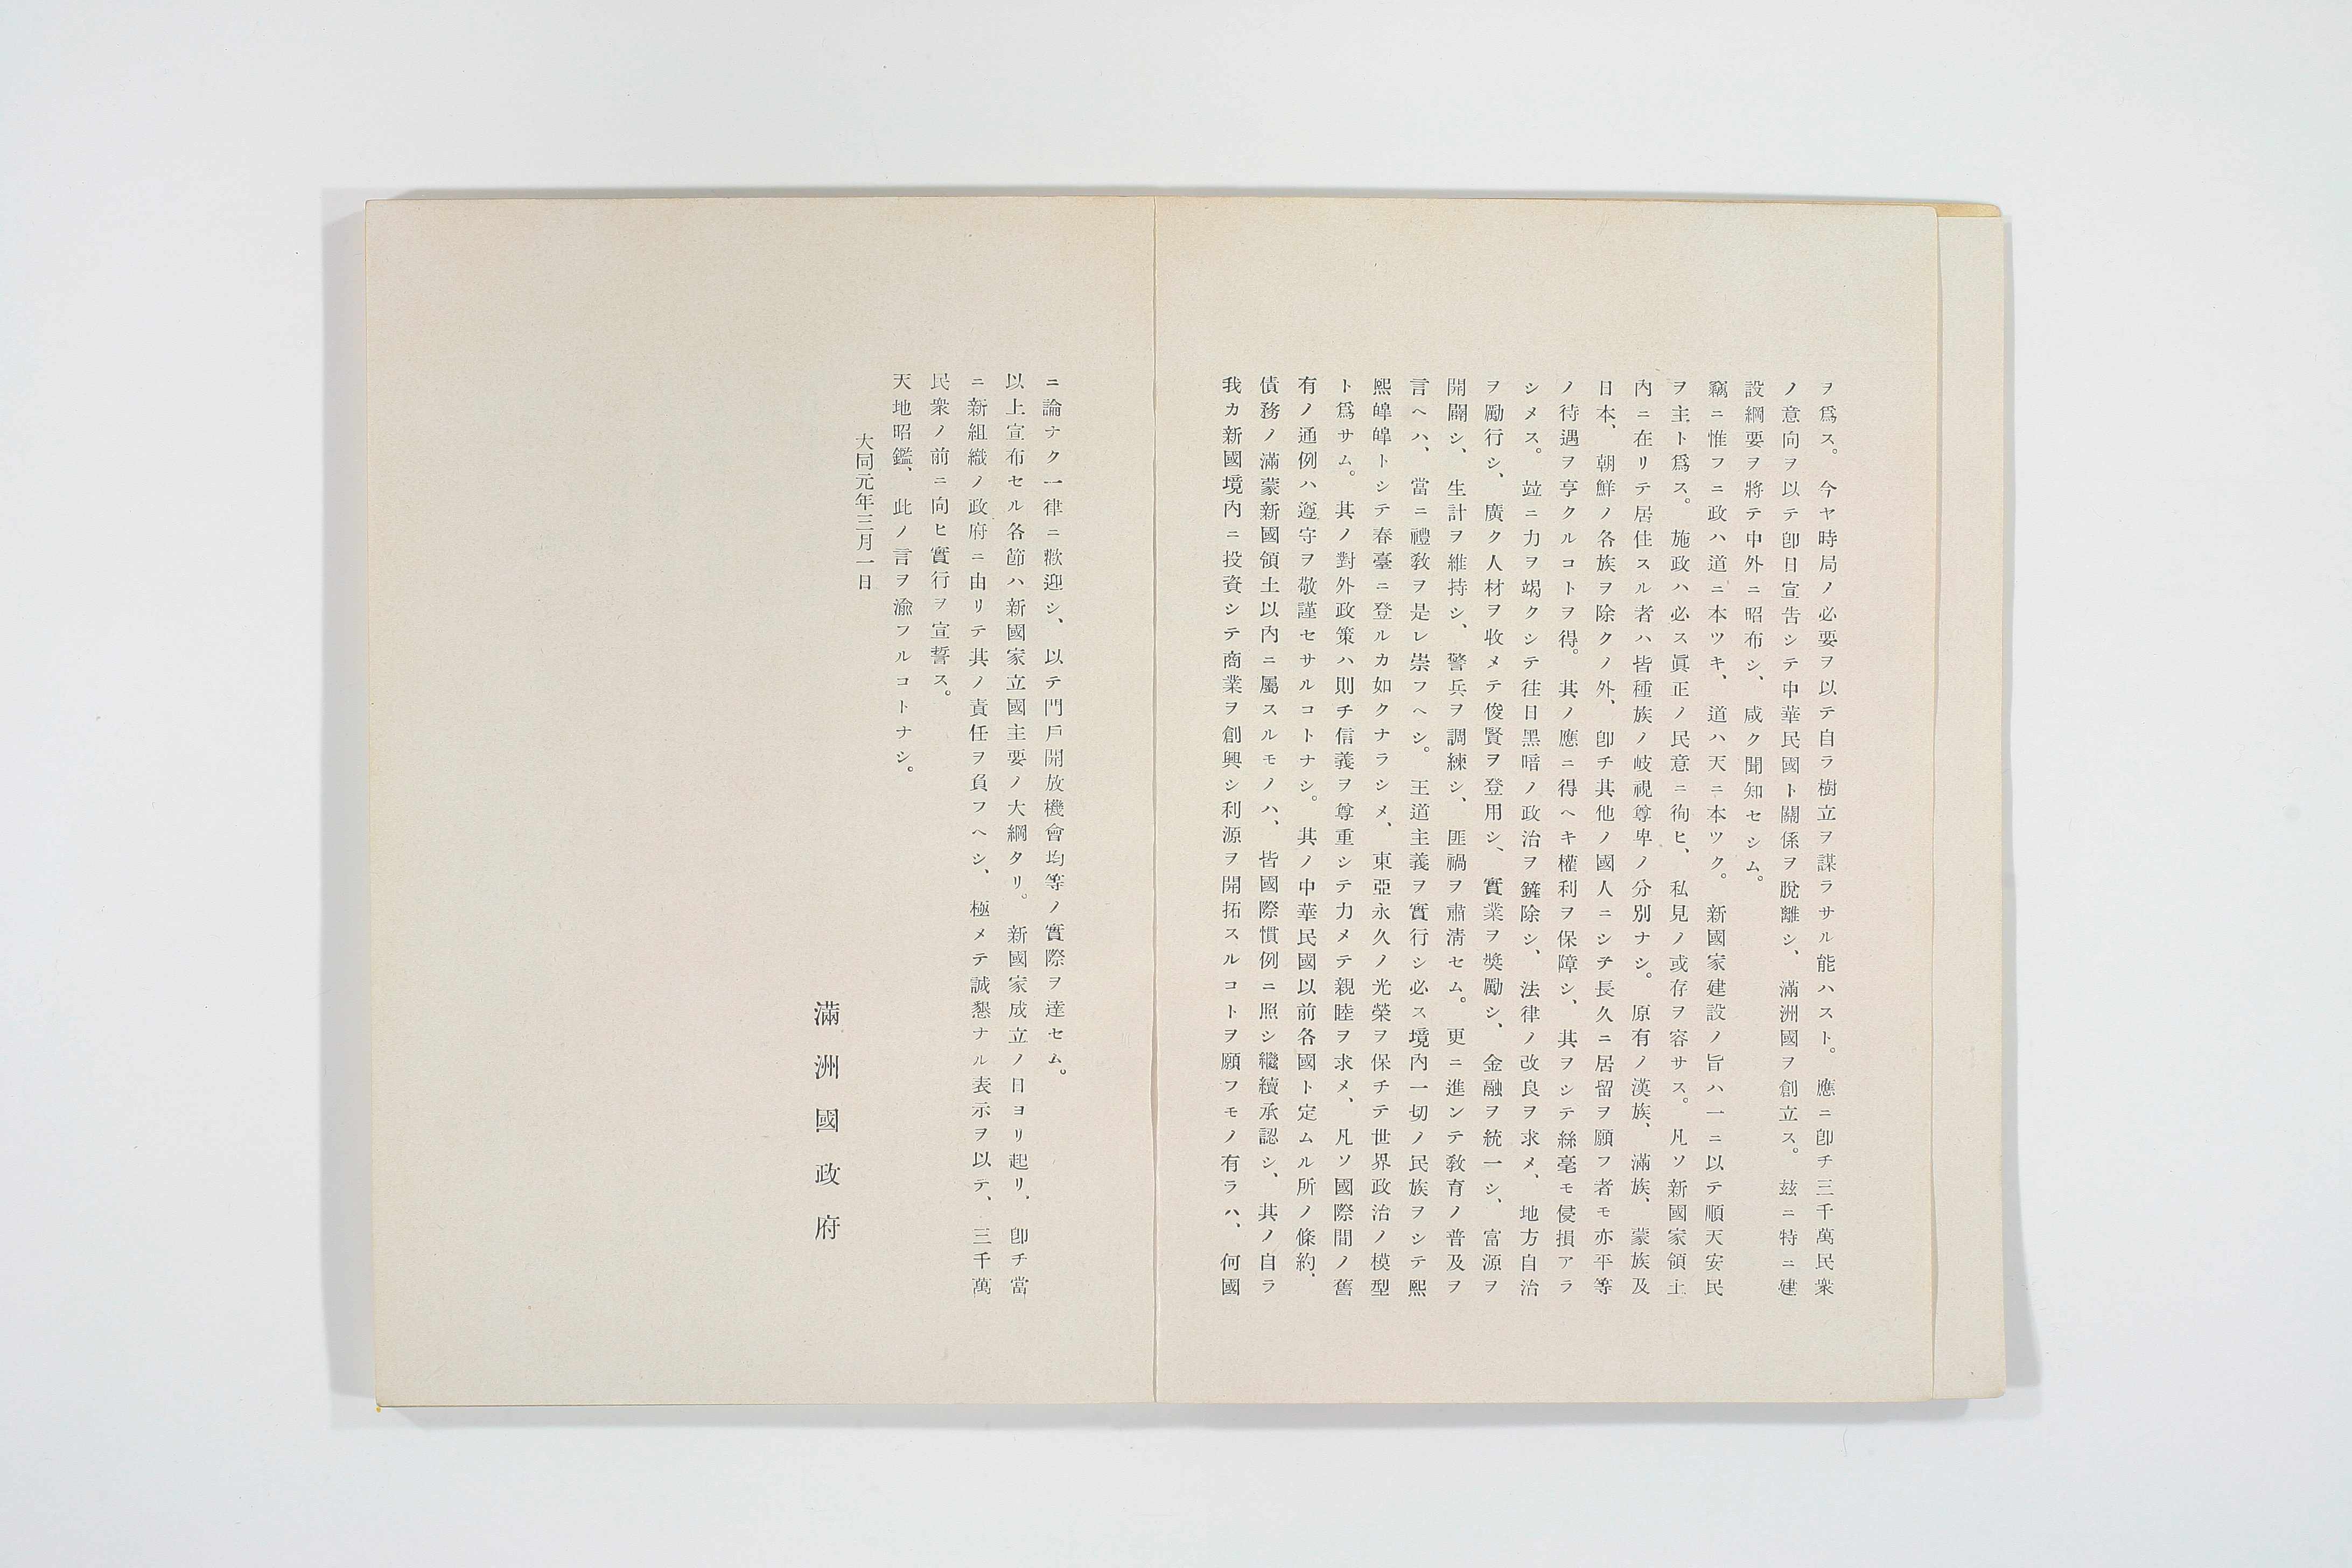 ヲ爲ス。今ヤ時局ノ必要ヲ以テ自ラ樹立ヲ謀ラサル能ハスト。應ニ卽チ三千萬民衆
ノ意向ヲ以テ卽日宣吿シテ中華民國ト關係ヲ脫離シ、滿洲國ヲ創立ス。玆ニ特ニ建
設綱要ヲ將テ中外ニ昭布シ、咸ク聞知セシム。
竊ニ惟フニ政ハ道ニ本ツキ、道ハ天ニ本ツク。新國家建設ノ旨ハ一ニ以テ順天安民
ヲ主ト爲ス。施政ハ必ス眞正ノ民意ニ徇ヒ、私見ノ或存ヲ容サス。凡ソ新國家領土
內ニ在リテ居住スル者ハ皆種族ノ岐視尊卑ノ分別ナシ。原有ノ漢族、滿族、蒙族及
日本、朝鮮ノ各族ヲ除クノ外、卽チ其他ノ國人ニシテ長久ニ居留ヲ願フ者モ亦平等
ノ待遇ヲ亨クルコトヲ得。其ノ應ニ得ヘキ權利ヲ保障シ、其ヲシテ絲毫モ侵損アラ
シメス。竝ニ力ヲ竭クシテ往日黑暗ノ政治ヲ鏟除シ、法律ノ改良ヲ求メ、地方自治
ヲ勵行シ、廣ク人材ヲ收メテ俊賢ヲ登用シ、實業ヲ奬勵シ、金融ヲ統一シ、富源ヲ
開闢シ、生計ヲ維持シ、警兵ヲ調練シ、匪禍ヲ肅淸セム。更ニ進ンテ敎育ノ普及ヲ
言ヘハ、當ニ禮敎ヲ是レ崇フヘシ。王道主義ヲ實行シ必ス境內一切ノ民族ヲシテ熙
熙皥皥トシテ春臺ニ登ルカ如クナラシメ、東亞永久ノ光榮ヲ保チテ世界政治ノ模型
ト爲サム。其ノ對外政策ハ則チ信義ヲ尊重シテ力メテ親睦ヲ求メ、凡ソ國際間ノ舊
有ノ通例ハ遵守ヲ敬謹セサルコトナシ。其ノ中華民國以前各國ト定ムル所ノ條約、
債務ノ滿蒙新國領土以內ニ屬スルモノハ、皆國際慣例ニ照シ繼續承認シ、其ノ自ラ
我カ新國境內ニ投資シテ商業ヲ創興シ利源ヲ開拓スルコトヲ願フモノ有ラハ、何國
ニ論ナク一律ニ歡迎シ、以テ門戶開放機會均等ノ實際ヲ達セム。
以上宣布セル各節ハ新國家立國主要ノ大綱タリ。新國家成立ノ日ヨリ起リ、卽チ當
ニ新組織ノ政府ニ由リテ其ノ責任ヲ負フヘシ、極メテ誠懇ナル表示ヲ以テ、三千萬
民衆ノ前ニ向ヒ實行ヲ宣誓ス。
天地昭鑑、此ノ言ヲ渝フルコトナシ。
大同元年三月一日
滿洲國政府